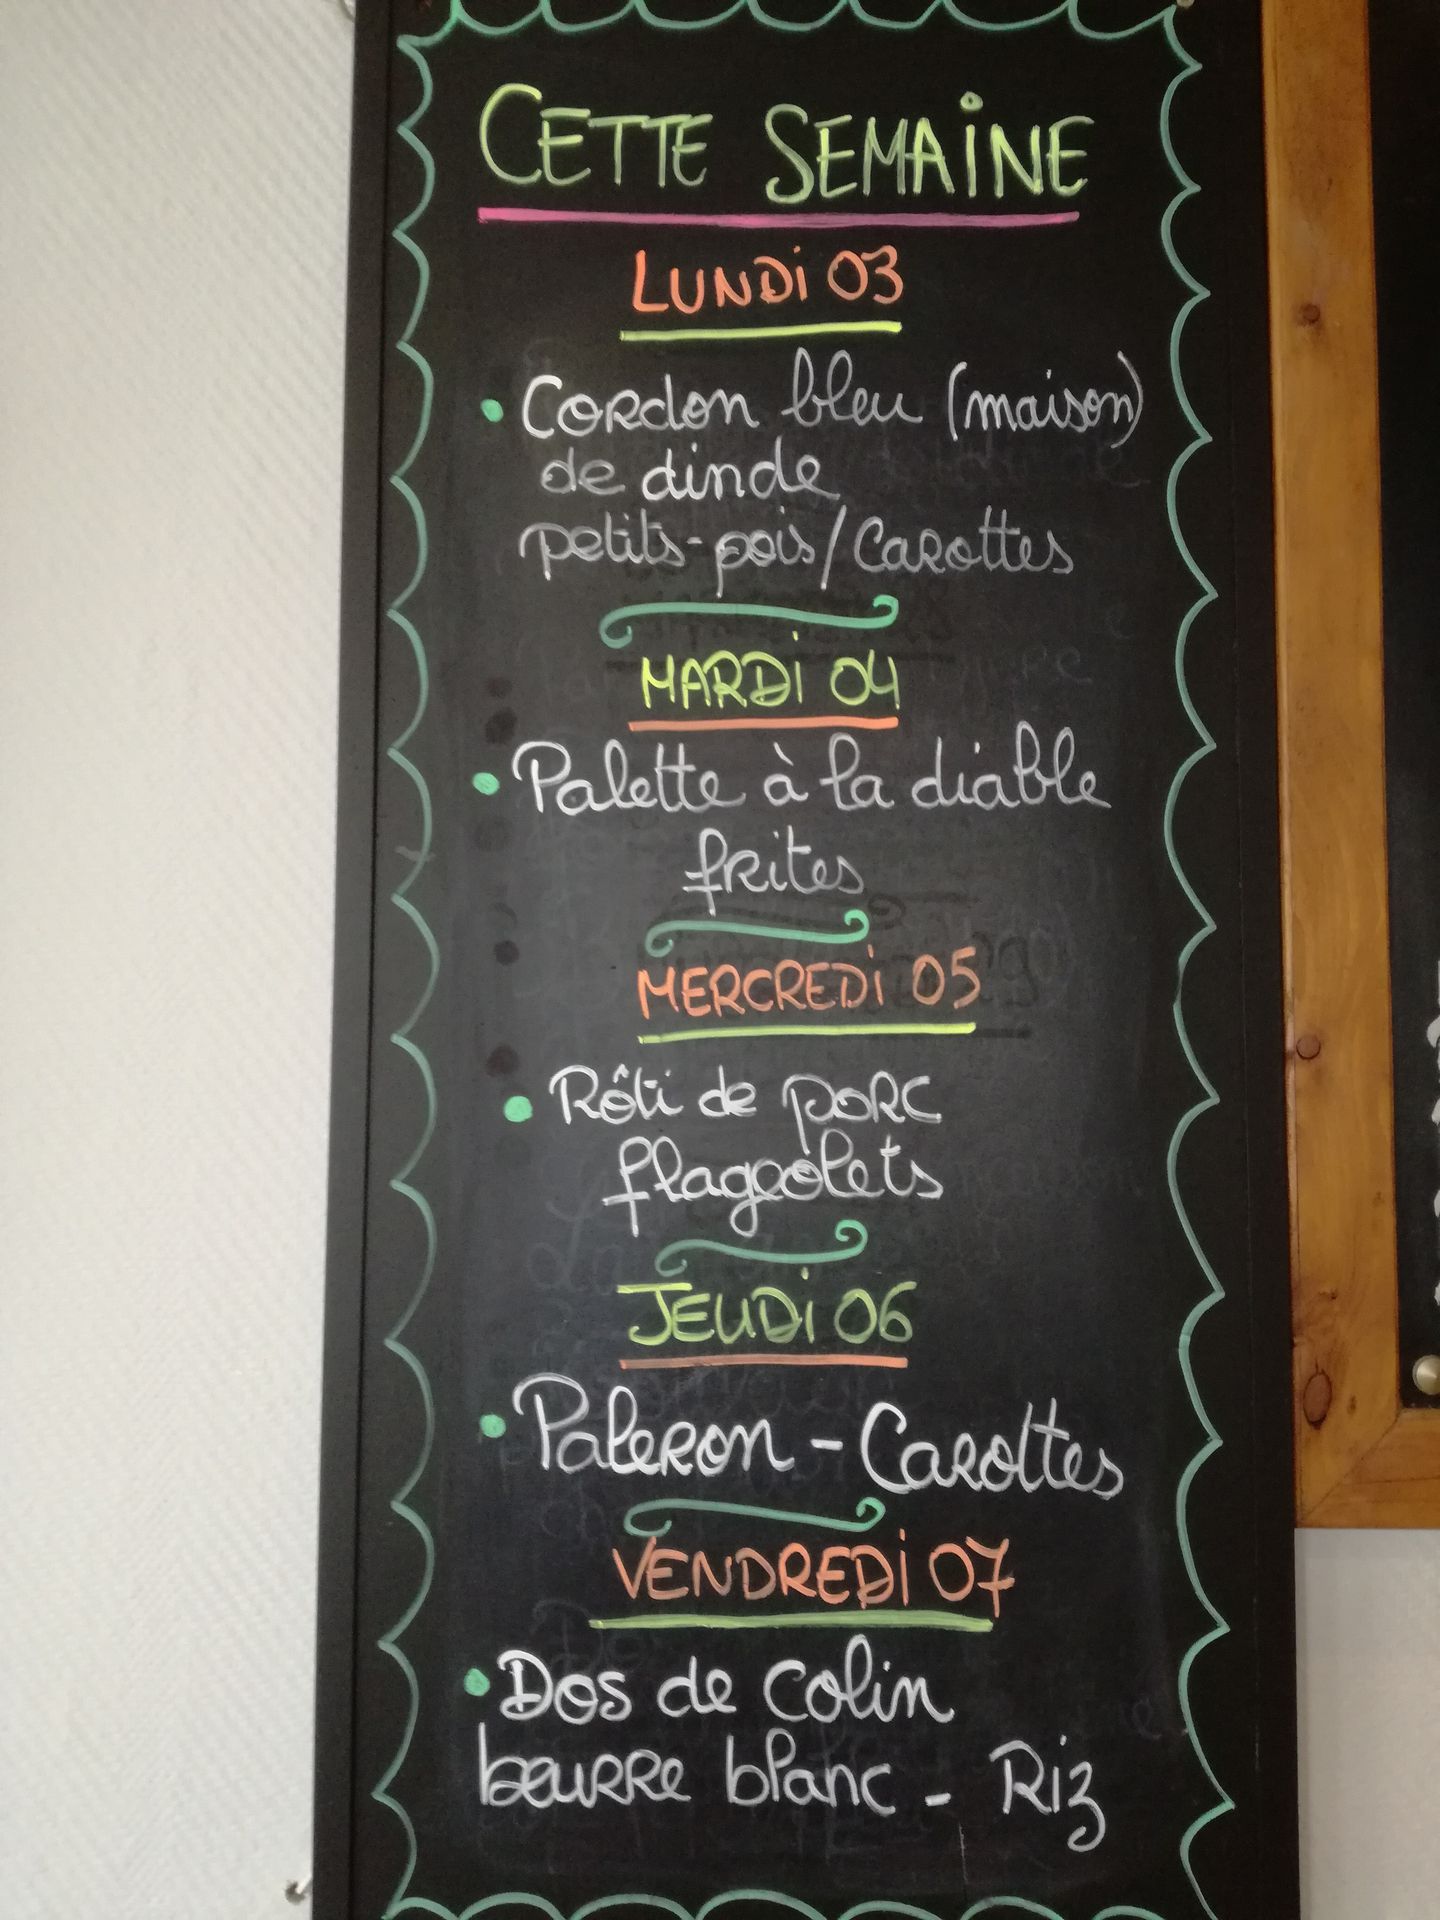 CETTE SEMAINE
LUNDI 03
• Cordon bleu (maison)
de dinde
petits-pois/Carottes
MARDI 04
• Palette à la diable
frites
MERCREDI 05
• Rôti de porc
flageolets
JEUDI 06
• Paleron - Carottes
VENDREDI 07
• Dos de colin
beurre blanc - Riz